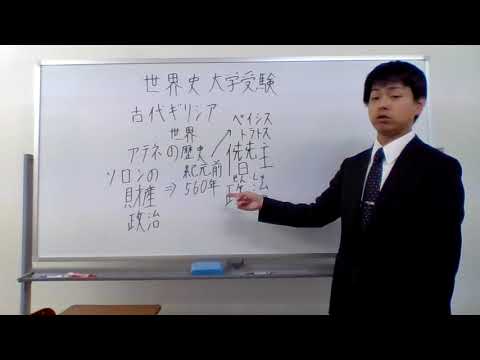 世界史 大学受験
古代ギリシア
世界
アテネの歴史
ソロンの
財産
政治
⇒
紀元前
560年
ペイシス
トラトス
僭主
せんしゅ
政治